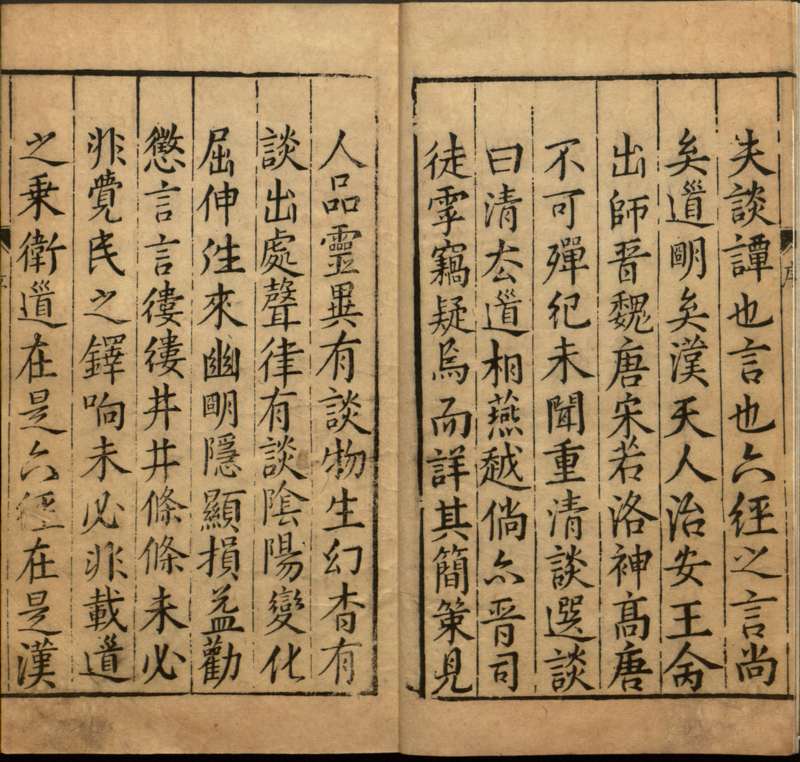 夫談譚也言也六經之言尚
矣道眀矣漢天人治安王命
出師晉魏唐宋若洛神髙唐
不可殫紀未聞重清談選談
曰清厺道相燕越倘亦晉司
徒竊疑焉而詳其簡策見
人品靈異有談物生幻杳有
談出處聲律有談陰陽變化
屈伸徃來幽眀隱顯損益勸
懲言言僂僂井井條條未必
非覺民之鐸响未必非載道
之乗衛道在是六經在是漢
序